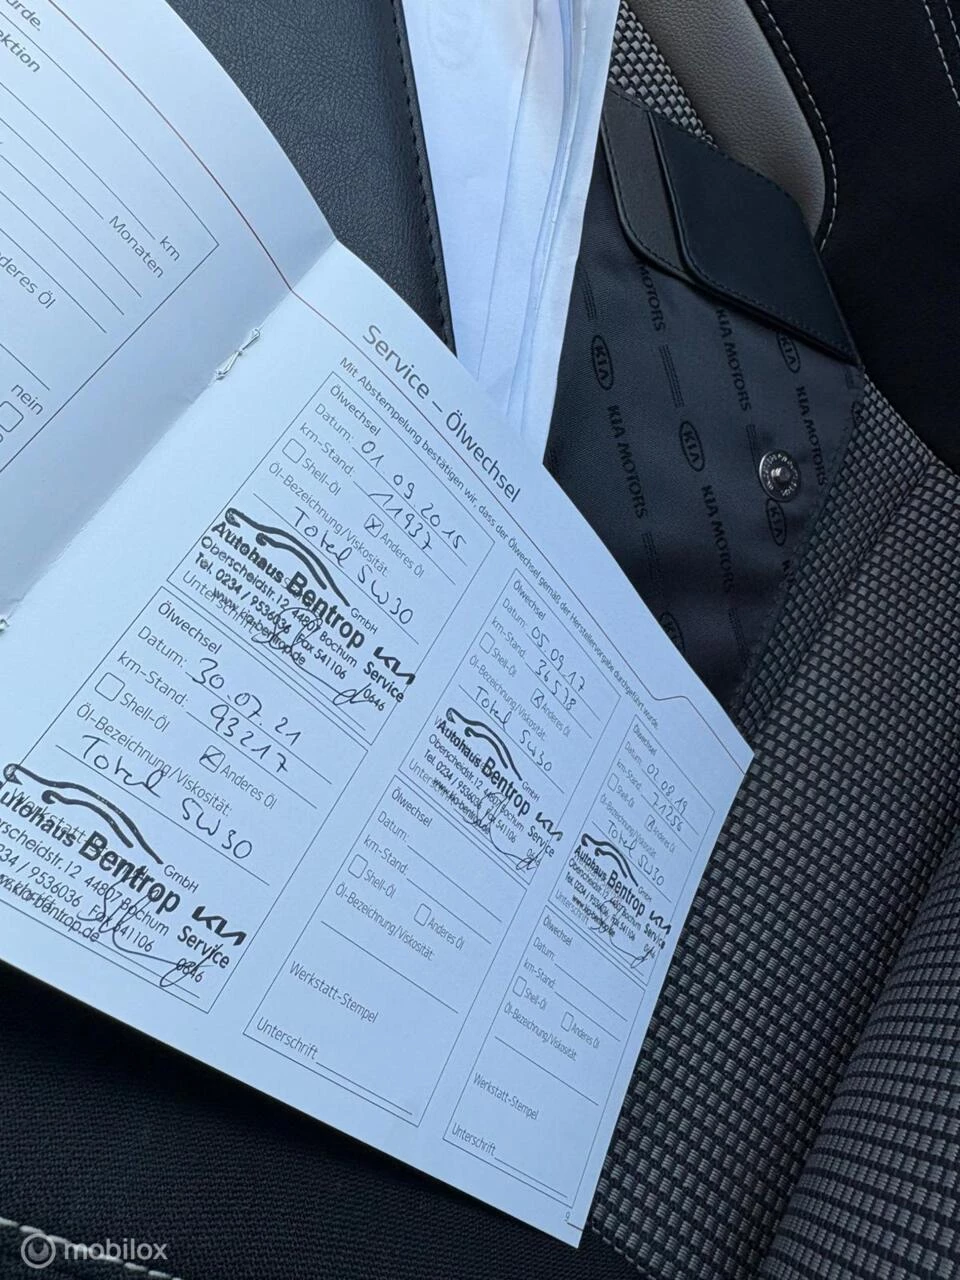 urde.
ektion
km
Monaten
nderes Öl
nein
Service – Ölwechsel
Mit Abstempelung bestätigen wir, dass der Ölwechsel gemäß der Herstellervorgabe durchgeführt wurde.
Ölwechsel
Datum: 01.09.2015
km-Stand: 11937
Shell-Öl
Anderes Öl
Öl-Bezeichnung/Viskosität:
Total 5W30
Autohaus
Bentrop GmbH
Oberscheidstr. 12 44807 Bochum
Tel. 0234 / 9536036 Fax 541106
www.kia-bentrop.de
KIA Service
0646
Unterschrift
Ölwechsel
Datum: 05.09.17
km-Stand: 34538
Shell-Öl
Anderes Öl
Öl-Bezeichnung/Viskosität:
Total 5W30
Autohaus
Bentrop GmbH
Oberscheidstr. 12 44807 Bochum
Tel. 0234 / 9536036 Fax 541106
www.kia-bentrop.de
KIA Service
0646
Unterschrift
Ölwechsel
Datum: 02.08.19
km-Stand: 71256
Shell-Öl
Anderes Öl
Öl-Bezeichnung/Viskosität:
Total 5W30
Autohaus
Bentrop GmbH
Oberscheidstr. 12 44807 Bochum
Tel. 0234 / 9536036 Fax 541106
www.kia-bentrop.de
KIA Service
0646
Unterschrift
Ölwechsel
Datum: 30.07.21
km-Stand: 93217
Shell-Öl
Anderes Öl
Öl-Bezeichnung/Viskosität:
Total 5W30
Werkstatt
Autohaus
Bentrop GmbH
Oberscheidstr. 12 44807 Bochum
0234 / 9536036 Fax 541106
www.kia-bentrop.de
KIA Service
0646
Ölwechsel
Datum:
km-Stand:
Shell-Öl
Anderes Öl
Öl-Bezeichnung/Viskosität:
Werkstatt-Stempel
Unterschrift
Ölwechsel
Datum:
km-Stand:
Shell-Öl
Anderes Öl
Öl-Bezeichnung/Viskosität:
Werkstatt-Stempel
Unterschrift
9
MOTORS
KIA
KIA MOTORS
KIA
KIA MOTORS
KIA
KIA MOTORS
KIA MOTORS
KIA
KIA MOTORS
mobilox